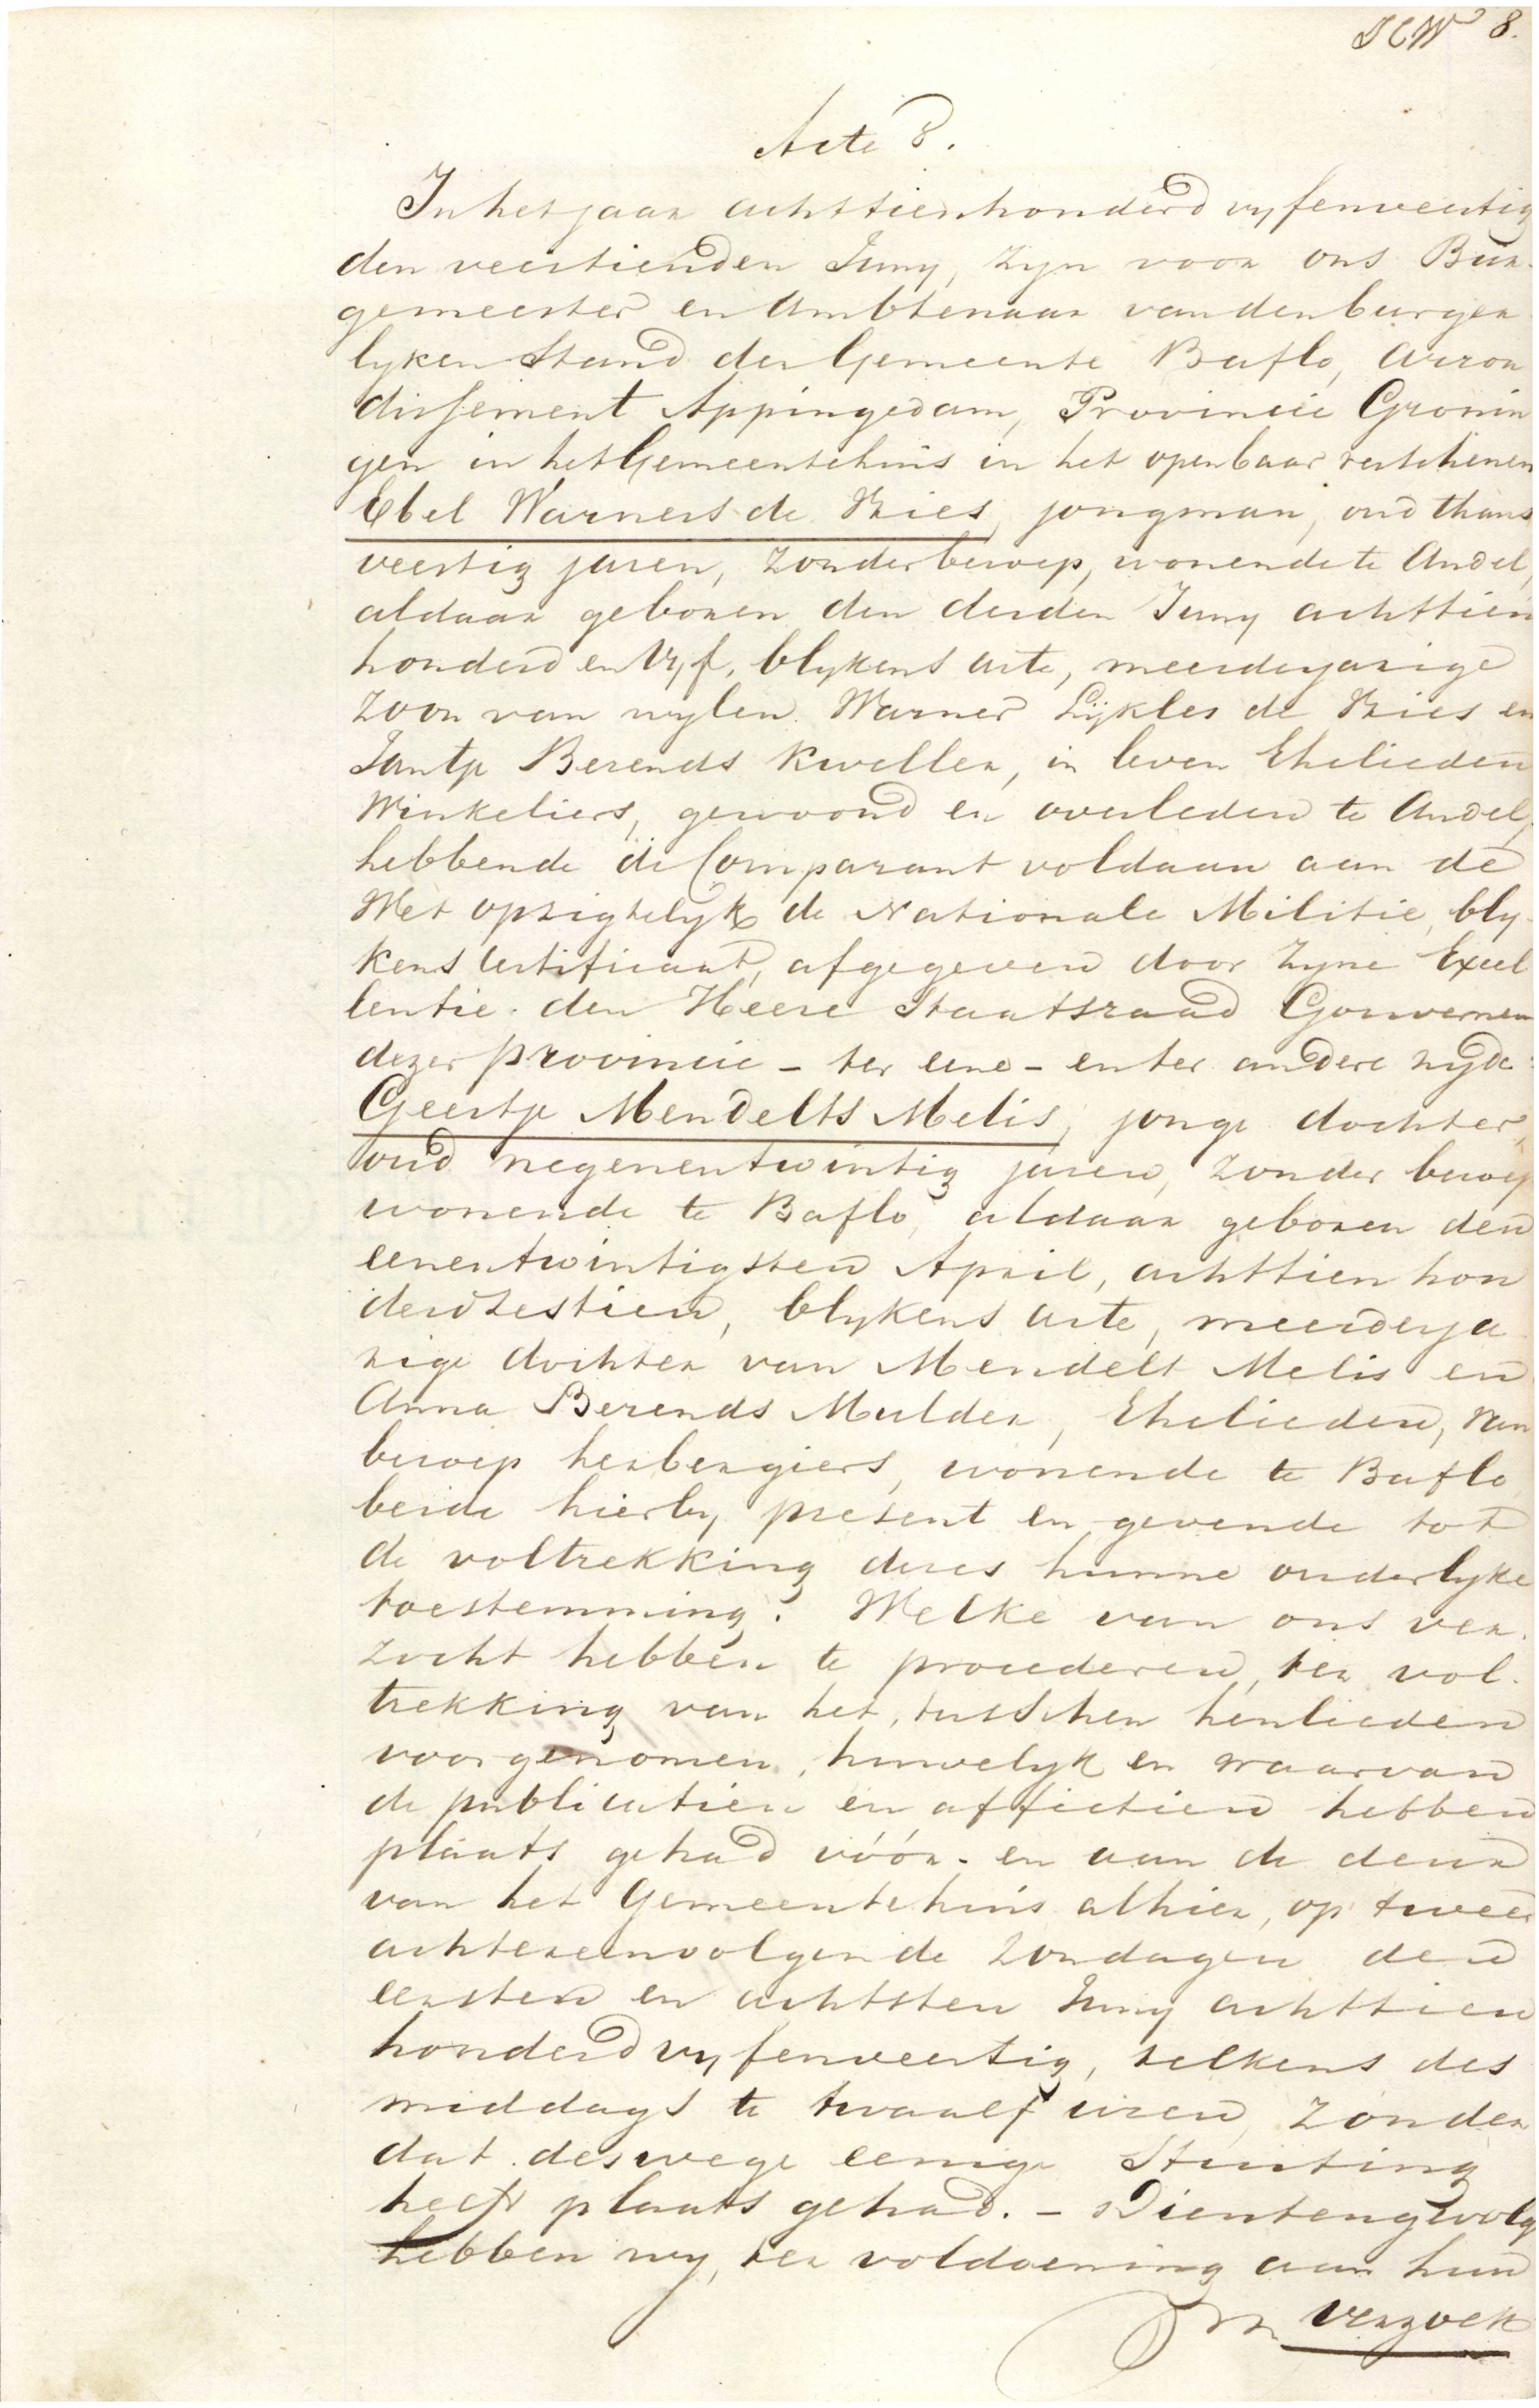 8.
Acte 8.
In het jaar achttienhonderd vyfenveertig
den veertienden Juny, zyn voor ons Bur-
gemeester en Ambtenaar van den burger
lyken Stand der Gemeente Baflo, Arron
dissement Appingedam, Provincie Gronin
gen in het Gemeentehuis in het openbaar verschenen
Ebel Warners de Vries, jongman, oud thans
veertig jaren, zonder beroep, wonende te Andel,
aldaar geboren den derden Juny achttien
honderd en Vyf, blykens acte, meerderjarige
zoon van wylen Warner Lijkles de Vries en
Jantje Berends Kweller, in leven Ehelieden
Winkeliers, gewoond en overleden te Andel,
hebbende de Comparant voldaan aan de
Wet opzigtelyk de Nationale Militie, bly-
kens Certificaat, afgegeven door Zyne Excel
lentie den Heere Staatsraad Gouverneur
dezer provincie - ter eene - en ter andere zyde:
Geertje Mendelts Melis, jonge dochter,
oud negenentwintig jaren, zonder beroep
wonende te Baflo, aldaar geboren den
eenentwintigsten April, achttien hon
derdzestien, blykens acte, meerderja
rige dochter van Mendelt Melis en
Anna Berends Mulder, Ehelieden, van
beroep herbergiers, wonende te Baflo
beide hierby present en gevende tot
de voltrekking dezes hunne ouderlyke
toestemming. Welke van ons ver-
zocht hebben te procederen, ter vol-
trekking van het, tusschen henlieden
voorgenomen, huwelyk en waarvan
de publicatien en affictien hebben
plaats gehad vóór- en aan de deur
van het Gemeentehuis alhier, op twee
achtereenvolgende Zondagen den
eersten en achtsten Juny achttien
honderd vyfenveertig, telkens des
middags te twaalf uren, zonder
dat deswege eenige Stuiting
heeft plaats gehad. - Dientengevolge
hebben wy, ter voldoening aan hun
verzoek